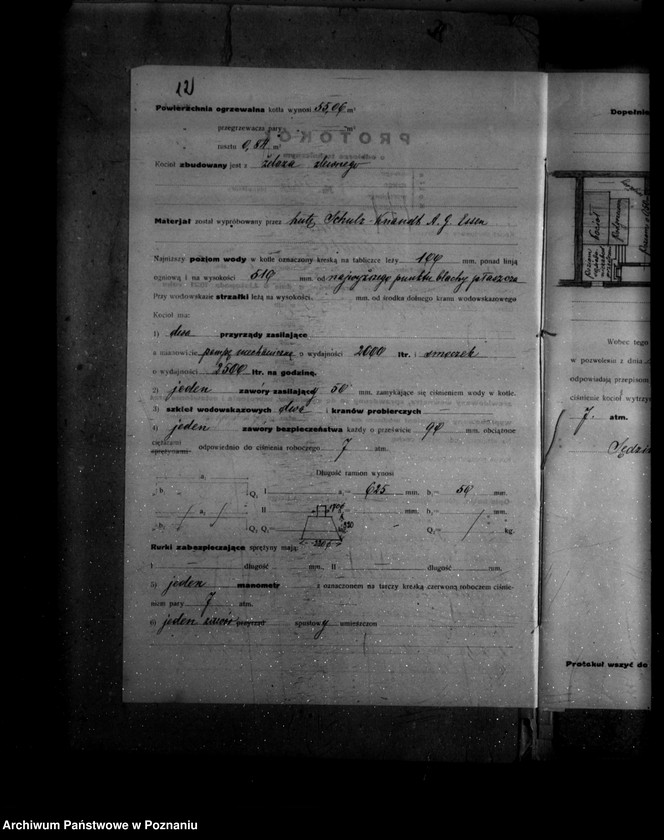 12)
Powierzchnia ogrzewalna kotła wynosi 55,06 m²
„ przegrzewacza pary m²
„ rusztu m²
Kocioł zbudowany jest z żelaza zlewnego
PROTOKÓ
Materjał został wypróbowany przez hutę Schulz-Knaudt A.G. Essen
Najniższy poziom wody w kotle oznaczony kreską na tabliczce leży mm. ponad linją
ogniową i na wysokości 510 mm. od najwyższego punktu blachy płaszcza
Przy wodowskazie strzałki leżą na wysokości mm. od środka dolnego kranu wodowskazowego
Kocioł ma:
1) dwa przyrządy zasilające
a mianowicie pompę mechaniczną o wydajności 2000 ltr. i smoczek
o wydajności 2500 ltr. na godzinę.
2) jeden zawory zasilający 50 mm. zamykające się ciśnieniem wody w kotle.
3) szkieł wodowskazowych dwa i kranów probierczych
4) jeden zawory bezpieczeństwa każdy o prześwicie 90 mm. obciążone
ciężarami
sprężynami odpowiednio do ciśnienia roboczego 7 atm.
Długość ramion wynosi
a₁
b₁ Q₁ I a₁ = 625 mm. b₁ = 50 mm.
a₂ II mm. b₂ mm.
b₂ Q₂ Q₁ = Q₂ = kg.
220
Rurki zabezpieczające sprężyny mają:
I długość mm., II długość mm.
5) jeden manometr z oznaczonem na tarczy kreską czerwoną roboczem ciśnie-
niem pary 7 atm.
6) jeden zawór przyrząd spustowy umieszczem
Dopełnie
Kocioł
Wobec tego
w pozwoleniu z dnia
odpowiadają przepisom
ciśnienie kocioł wytrzy
7. atm.
Sędzin
Protokuł wszyć do
Archiwum Państwowe w Poznaniu